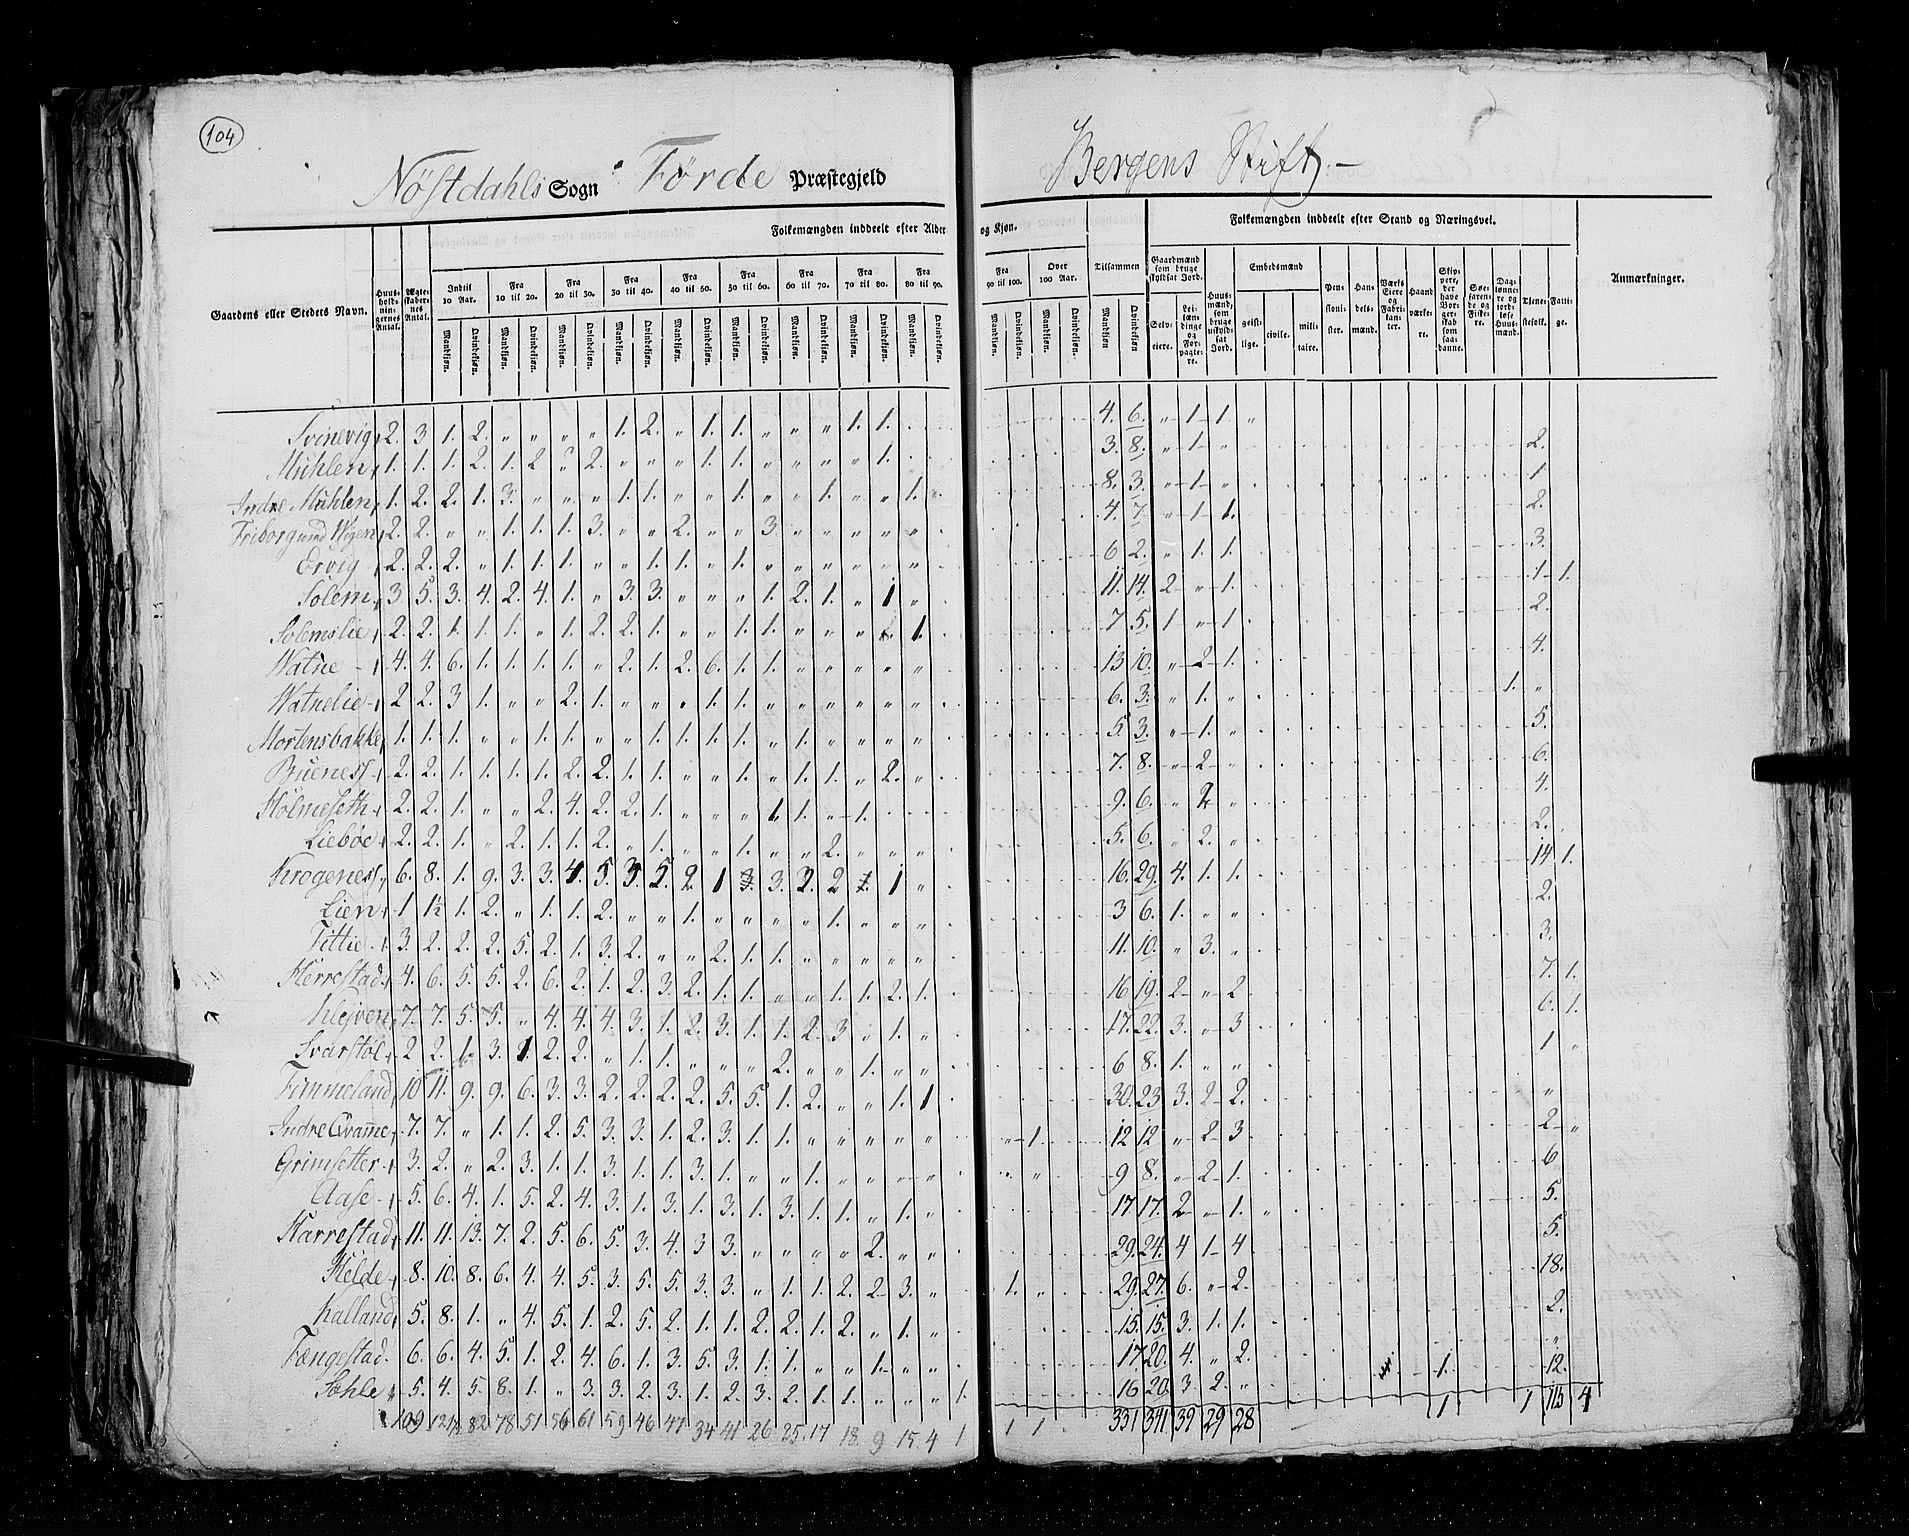 104
Nöstdahls Sogn Förde Præstegjeld
Bergens Stift
Folkemængden inddeelt efter Alder og Kjøn.
Folkemængden inddeelt efter Stand og Næringsvei.
Gaardens eller Stedets Navn.
Huusholdningernes Antal.
Ægteskabernes Antal.
Indtil 10 Aar.
Fra 10 til 20.
Fra 20 til 30.
Fra 30 til 40.
Fra 40 til 50.
Fra 50 til 60.
Fra 60 til 70.
Fra 70 til 80.
Fra 80 til 90.
Fra 90 til 100.
Over 100 Aar.
Mandkjøn. Qvindekjøn.
Tilsammen
Mandkjøn Qvindekjøn.
Gaardmænd som bruge skyldsat Jord.
Selveiere.
Leilændinge og Forpagtere.
Huusmænd, som bruge uskyldsat Jord.
Embedsmænd
geistlige. civile. militaire.
Pensionister.
Handelsmænd.
Værks Eiere og Fabrikanter.
Haandværkere.
Skippere, der have Borgerskab som saadanne.
Søefarende og Fiskere.
Daglønnere og jordløse Huusmænd.
Tjenestefolk.
Fattige.
Anmærkninger.
Svinevig 2. 3 1. 2. „ „ „ „ 1. 2. „ 1. 1. „ „ „ 1. 1. 4. 6. „ 1 1. „
Mühlen 1. 1. 1. 2. 1. 2 „ 2. „ „ „ 1. 1. „ „ „ „ 1. 3. 8. „ 1 „ 2.
Indre Mühlen 1. 2. 2. 1. 3. „ „ „ 1. 1. „ „ 1. „ „ 1. „ „ 1. „ 8. 3. „ 1 „ 1
Friborg und Wigen 2. 2. „ „ 1. 1. 1. 3. „ „ 2. „ „ 3. „ „ „ „ „ 4. 7. „ 1 1. 2.
Ervig 2. 2. 2. „ 1. 1. 1. „ „ 1. 1. „ 1. „ „ „ „ „ „ 6 2. „ 1. 1. 3.
Solem 3. 5. 3. 4. 2. 4. 1. „ 3. 3. „ „ „ 1. 2. 1. „ 1 „ 11. 14. 2 „ 1. 1 1.
Solemslie 2. 2. 1. 1. 1. „ 1. 2. 2. 1. „ „ 1. 1. „ „ „ 1. 7 5. 1 „ 1. 2.
Watne 4. 4. 6. 1. 1. 1. 1. „ 2. 1. 2. 6. 1. 1. „ „ „ „ „ 13 10. „ 2 1. 4.
Watnelie 2 2. 3 1. „ „ 2. 1. „ „ „ 1. 1. „ „ „ „ „ „ 6. 3. „ 1. „ 1. „
Mortensbakke 1. 1. 1. „ „ 1. 1. „ „ 1. 1. 1. 1. „ 1. „ „ „ „ 5. 3. „ 1. „ 5.
Bueness 2. 2. 1. 1. 1. 1. 2. 2. 1. 1. „ „ 1. „ 1. 1. „ 2. „ 7. 8. „ 2 „ 6.
Holmeseth 2. 2. 1. „ „ 2. 4. 2. 2. 1. „ „ „ 1. 1. „ 1. 9. 6. „ 2 „ 4.
Lieböe 2. 2. 1. „ 2. 1. 1. 2. „ 1. „ „ 1. „ „ 2. „ „ „ 5. 6. „ 2. „ 2.
Krogeness 6. 8. 1. 9. 3. 3. 4. 5. 3. 5. 2. 1 3. 3. 2. 2 1. 1 „ 16. 29. 4. 1. 1. 14 1.
Lien 1 1½ 1. 2. „ 1. 1. 2. „ „ 1. „ „ „ „ 1. „ „ „ 3 6. 1. „ „ 2.
Tittie 3. 2. 2. 2. 5. 2. 1. 3. 2. „ „ 2. 1. 1. „ „ „ „ „ 11. 10. „ 3. „ 3.
Herrestad 4. 6. 5. 5. 2. 6. 2. 1. 2. 3. 2. 1. 1. „ „ 1. 1. 2. 1. 16 19. 2 „ 2. 7. 1.
Klejven 7. 7. 5. 5. „ 4. 4. 4. 3. 1. 2. 3. 1. 1. 2. 3 „ 1. „ 17. 22. 3. „ 3 6. 1.
Svarstöl 2 2. 1. 3. 1. 2. 2. „ 1. 1. „ „ „ 2. „ „ 1. „ „ 6 8. 1. „ „ 1 „
Fimmeland 10 11. 9. 9. 6. 3. 3. 2. 2. 2. 2. 5. 5. 1. 2. „ „ 1. 1 30. 23 3. 2 2. „
Indre Qvamme 7. 7. „ 1. 1. 2. 5. 3. 3. 1. 2. 3. 1. 1. „ „ „ „ „ „ 1. 12 12 „ 2 3. 2 „
Grimsetter 3. 2. „ 2. 3. 1. 1. 3. 1. 1. 3. 1. „ „ 1. „ „ „ „ 9 8. „ 2 1. 6
Aase 5. 6. 4. 1. 5. 2. 4. 3. 1. 3. 1. 3. 1. 3. 1. 1. „ 1. „ 17 17. 2 „ 1. „ 5.
Harrestad 11. 11. 13. 7. 2. 5. 6. 5. 3. 4. 3 3. „ „ „ „ 2. „ „ 29. 24. 4 1 4. 5.
Helde 8. 10. 8. 6. 4. 4. 5. 3. 5. 5. 3. 3. „ 1. 1. 2. 2 3. „ 1. „ 29. 27. 6. „ 2. 18.
Kalland 5. 8. 1. „ 4. 5. 1. 2. 5. 2. 1. 1. 2. 2. 1. 2. „ 1. „ 15. 15. 3. 1. 1. 2.
Fængestad 6. 6. 4. 5. 1. 2. 4. 6. 1. 3. 5. 3. 1. 1. „ „ 1. „ „ 17 20. 4. „ 2. „
Sohle 5. 4. 5. 8. 1. „ 3. 3. 2. 3. 1. 2. 3. 2. 1. 1. „ „ „ 1. 16 20. 3 2. „ 1. 12.
109 121½ 82 78 51 56 61 59 46 47 34 41 26 25 17 18. 9 15. 4 1 1 1 331 341 39 29 28 1 1 113 4